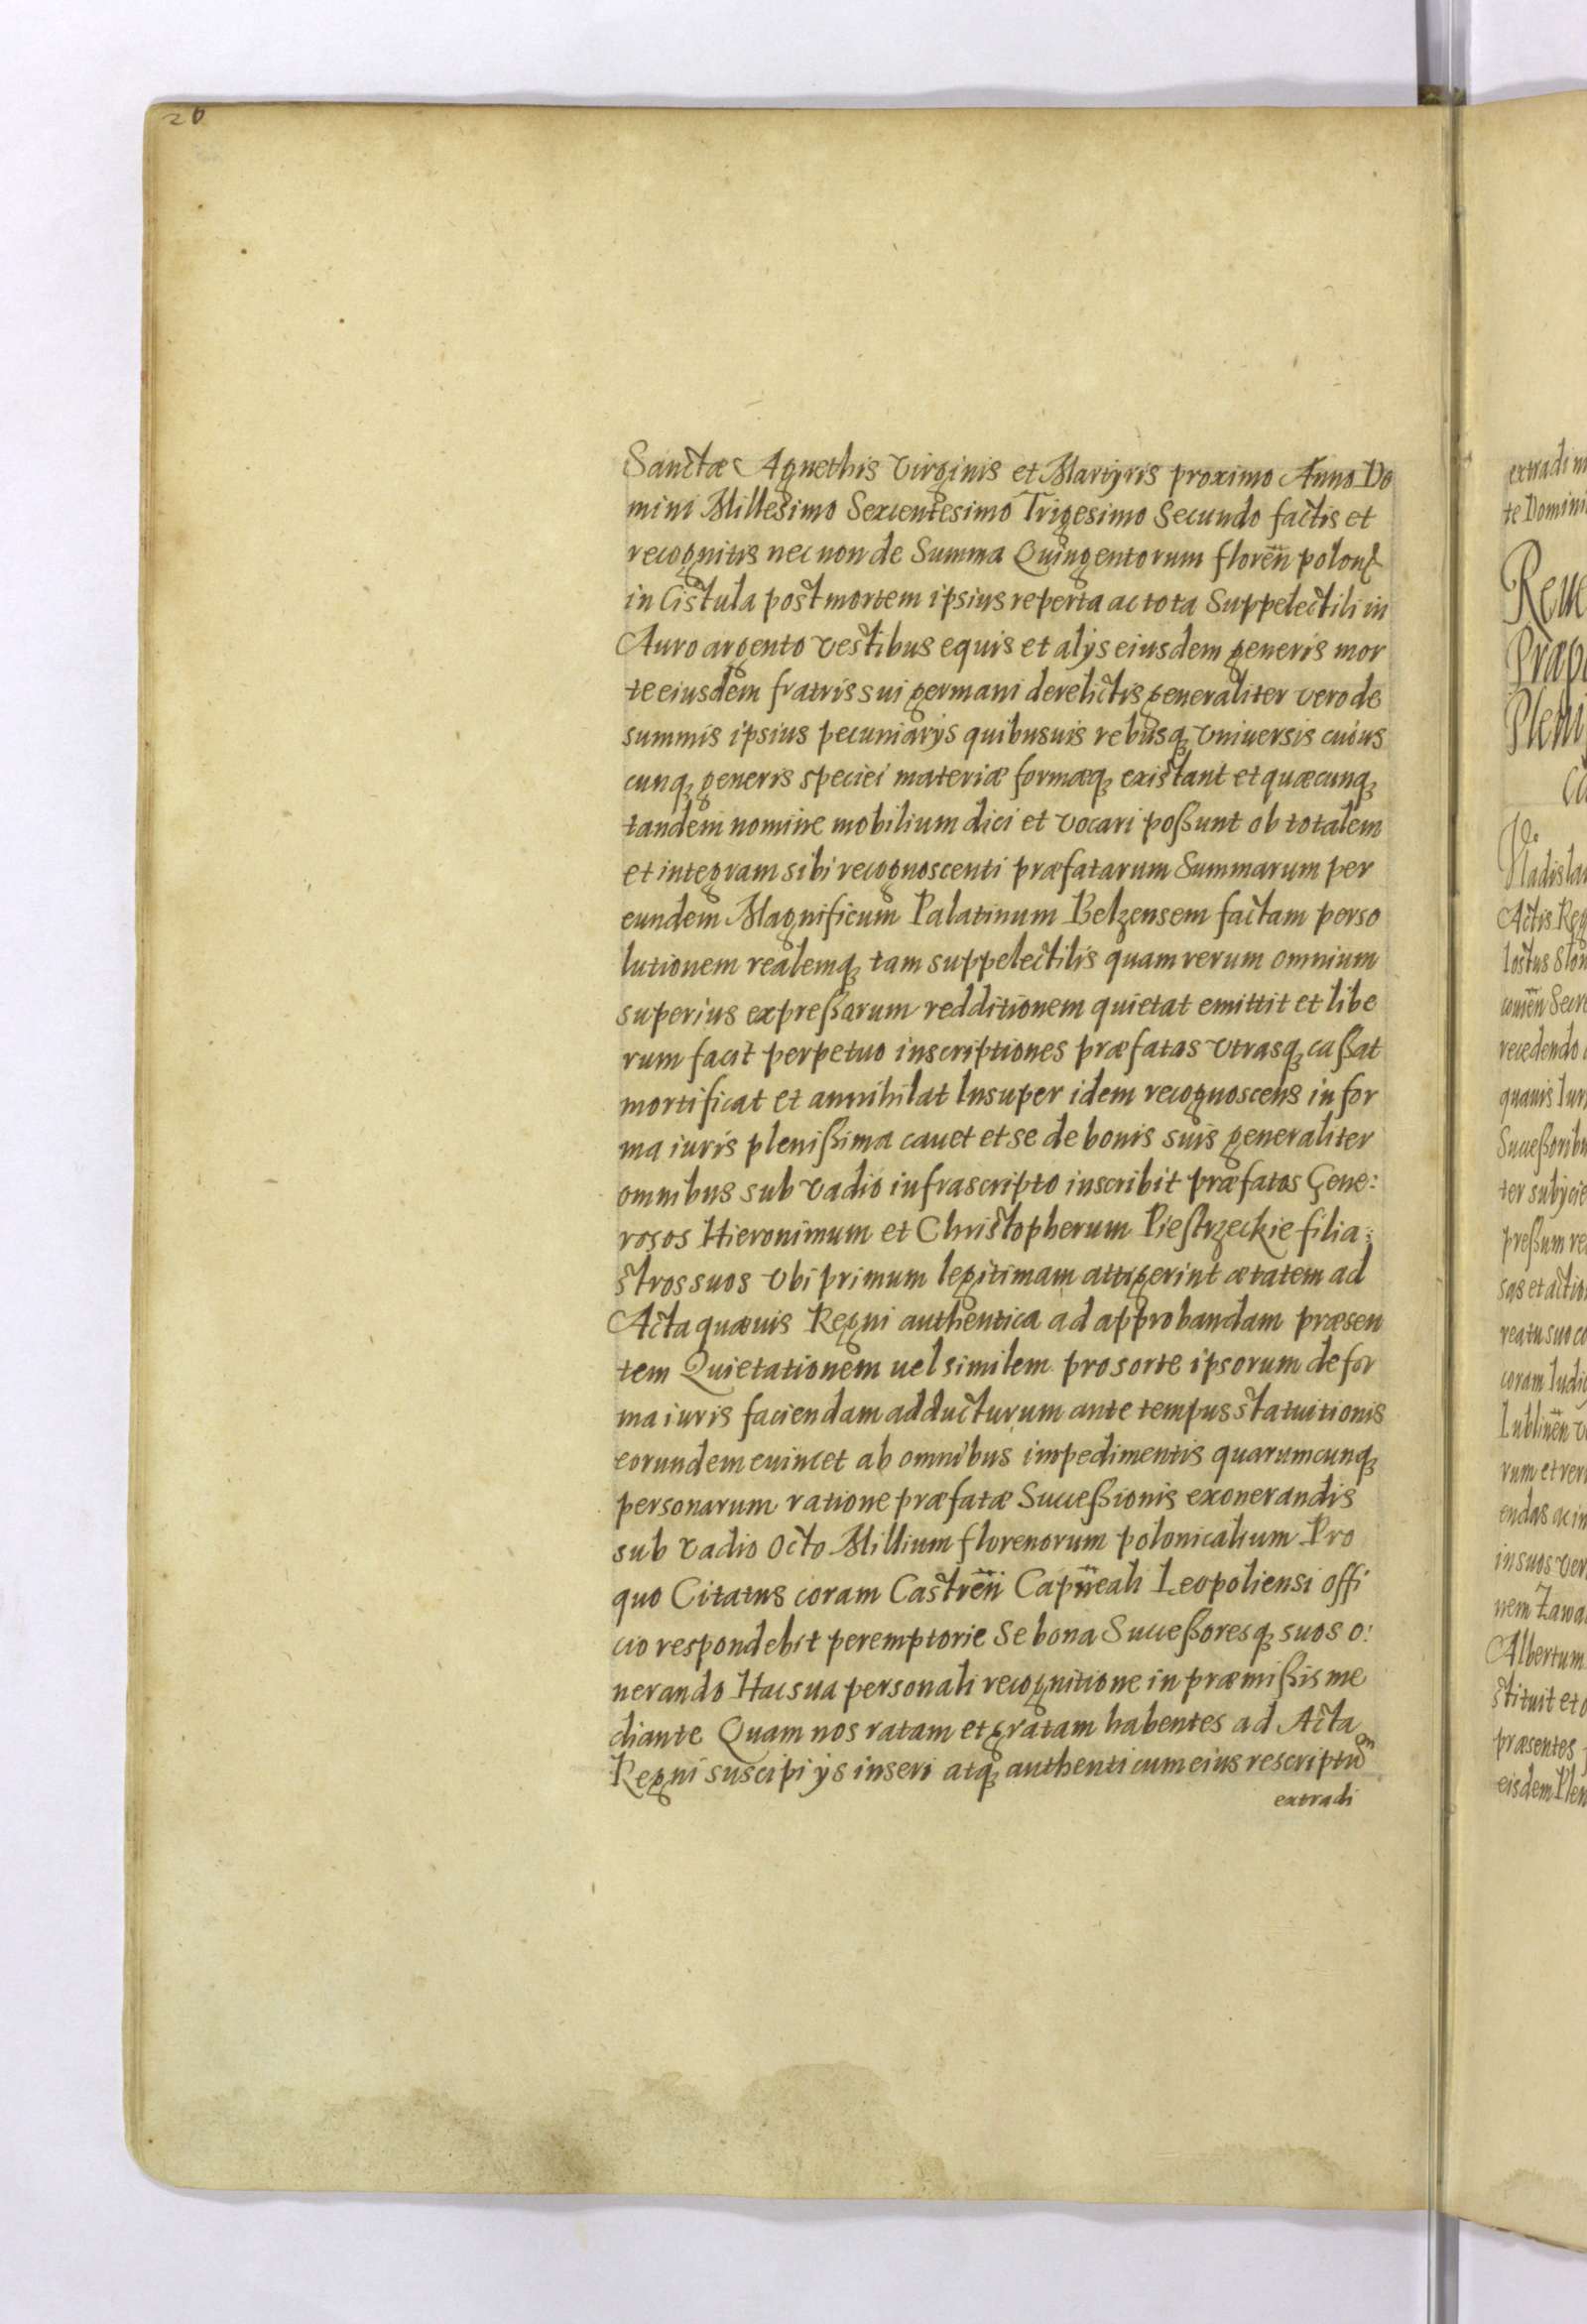 26
Sanctæ Agnethis Virginis et Martyris proximo Anno Do
mini Millesimo Sexcentesimo Trigesimo Secundo factis et
recognitis nec non de Summa Quingentorum floren̄ polon
in Cistula post mortem ipsius reperta ac tota Suppelectili in
Auro argento vestibus equis et alys eiusdem generis mor
te eiusdem fratris sui germani derelictis generaliter vero de
summis ipsius pecuniarys quibusuis rebusq vniuersis cuius
cunq generis speciei materiæ formæq existant et quæcunq
tandem nomine mobilium dici et vocari poßunt ob totalem
et integram sibi recognoscenti præfatarum Summarum per
eundem Magnificum Palatinum Belzensem factam perso
lutionem realemq tam suppelectilis quam rerum omnium
superius expreßarum redditionem quietat emittit et libe
rum facit perpetuo inscriptiones præfatas vtrasq caßat
mortificat et annihilat Insuper idem recognoscens in for
ma iuris plenißima cauet et se de bonis suis generaliter
omnibus sub vadio infrascripto inscribit præfatos Gene:
rosos Hieronimum et Christopherum Piestrzeckie filia:
stros suos vbi primum legitimam attigerint ætatem ad
Acta quæuis Regni authentica ad approbandam præsen
tem Quietationem uel similem pro sorte ipsorum de for
ma iuris faciendam adducturum ante tempus statuitionis
eorundem euincet ab omnibus impedimentis quarumcunq
personarum ratione præfatæ Succeßionis exonerandis
sub vadio Octo Millium florenorum polonicalium Pro
quo Citatus coram Castren̄ Capn̄eali Leopoliensi offi
cio respondebit peremptorie Se bona Succeßoresq suos o:
nerando Hac sua personali recognitione in præmißis me
diante Quam nos ratam et gratam habentes ad Acta
Regni suscipi ys inseri atq authenticum eius rescriptum
extradi